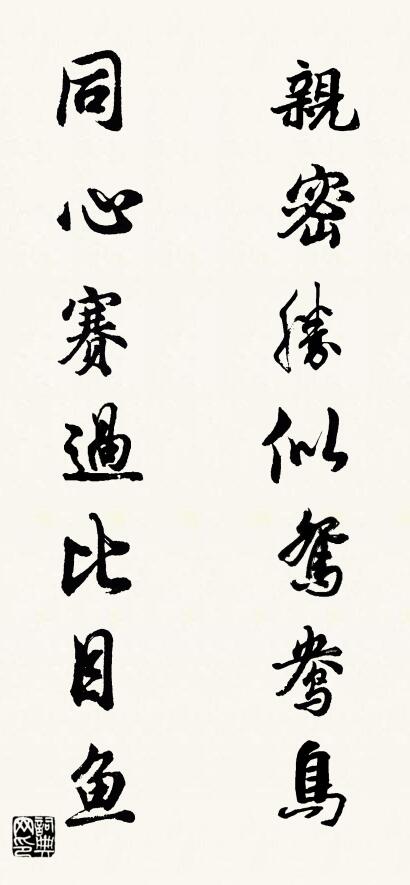 親密勝似鴛鴦鳥
同心賽過比目魚
詞典網印